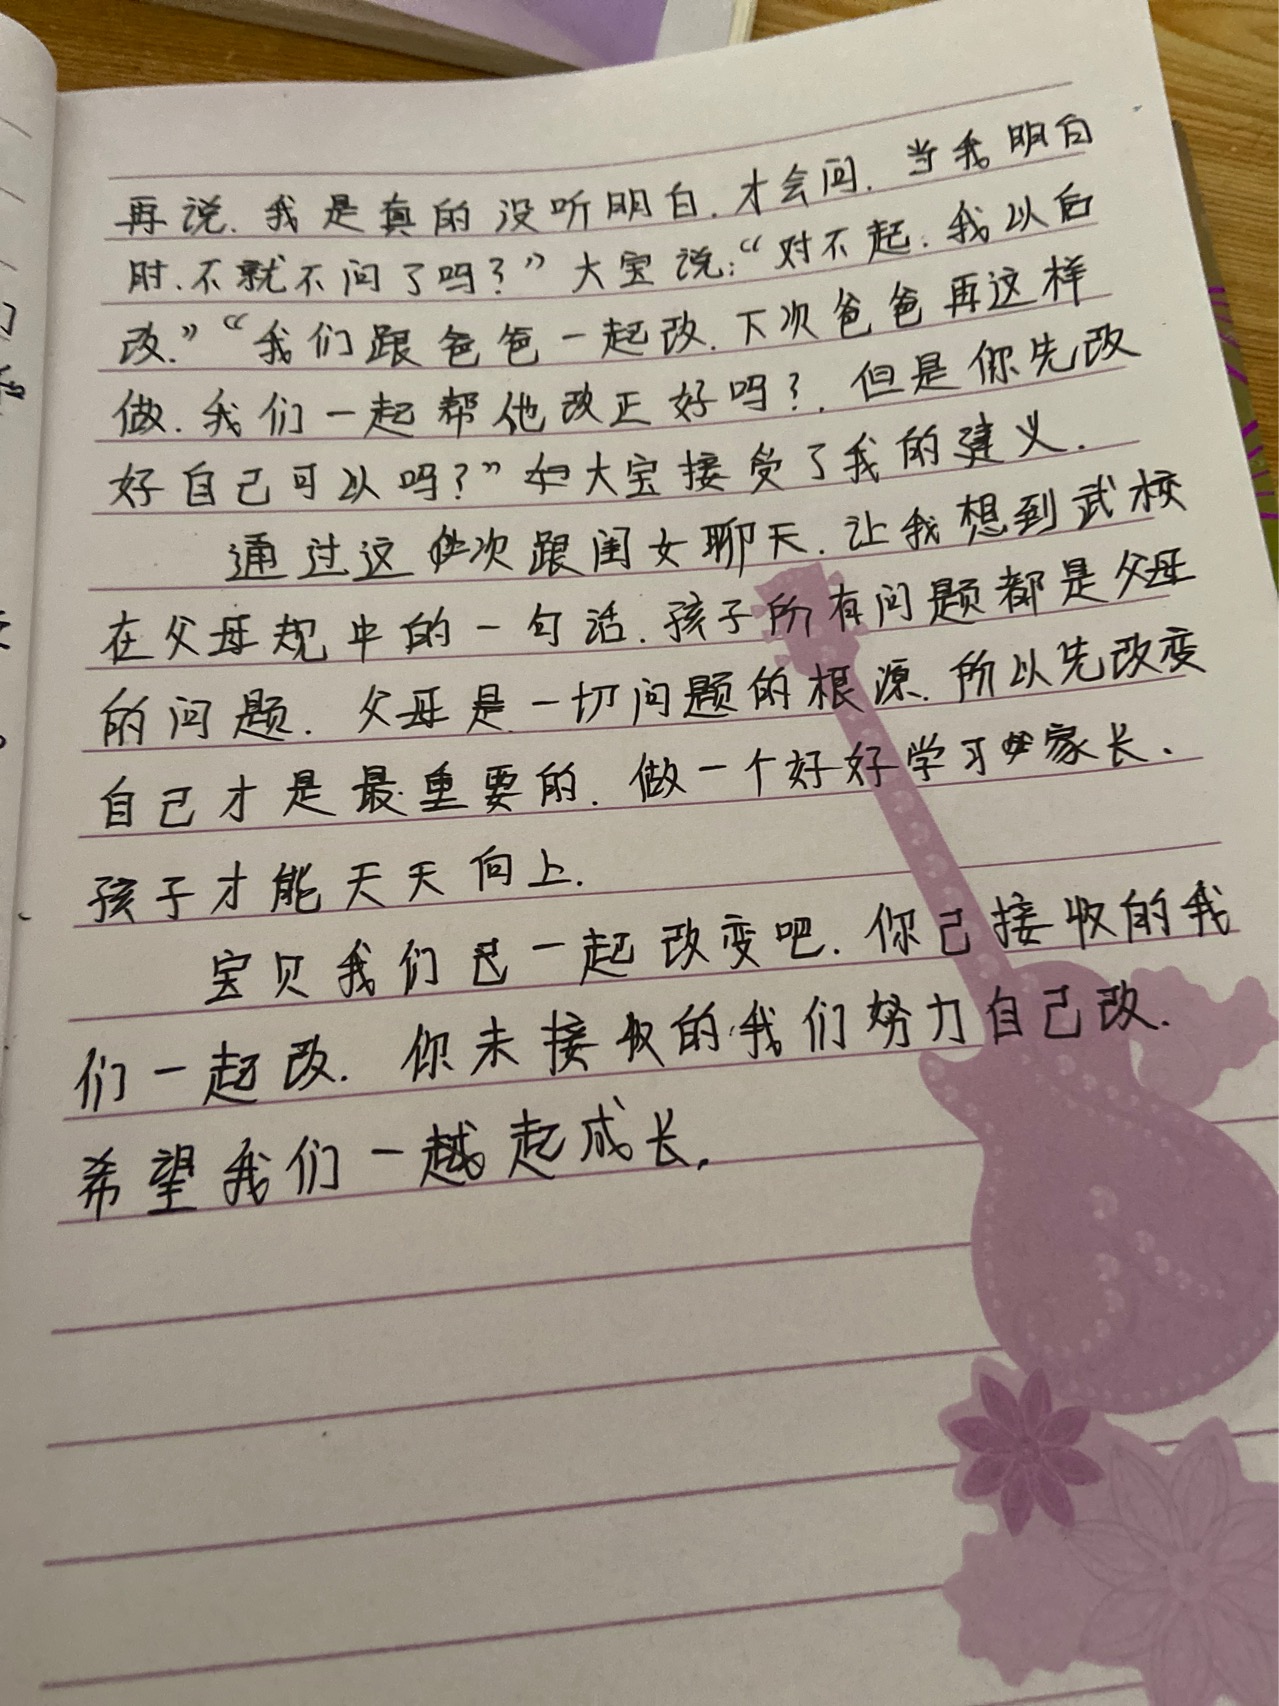 再说.我是真的没听明白.才会问.当我明白
时.不就不问了吗?”大宝说:“对不起.我以后
改.”“我们跟爸爸一起改.下次爸爸再这样
做.我们一起帮他改正好吗?.但是你先改
好自己可以吗?”大宝接受了我的建义.
通过这次跟闺女聊天.让我想到武校
在父母规中的一句话.孩子所有问题都是父母
的问题.父母是一切问题的根源.所以先改变
自己才是最重要的.做一个好好学习家长、
孩子才能天天向上.
宝贝我们一起改变吧.你己接收的我
们一起改.你未接收的我们努力自己改.
希望我们一起成长.